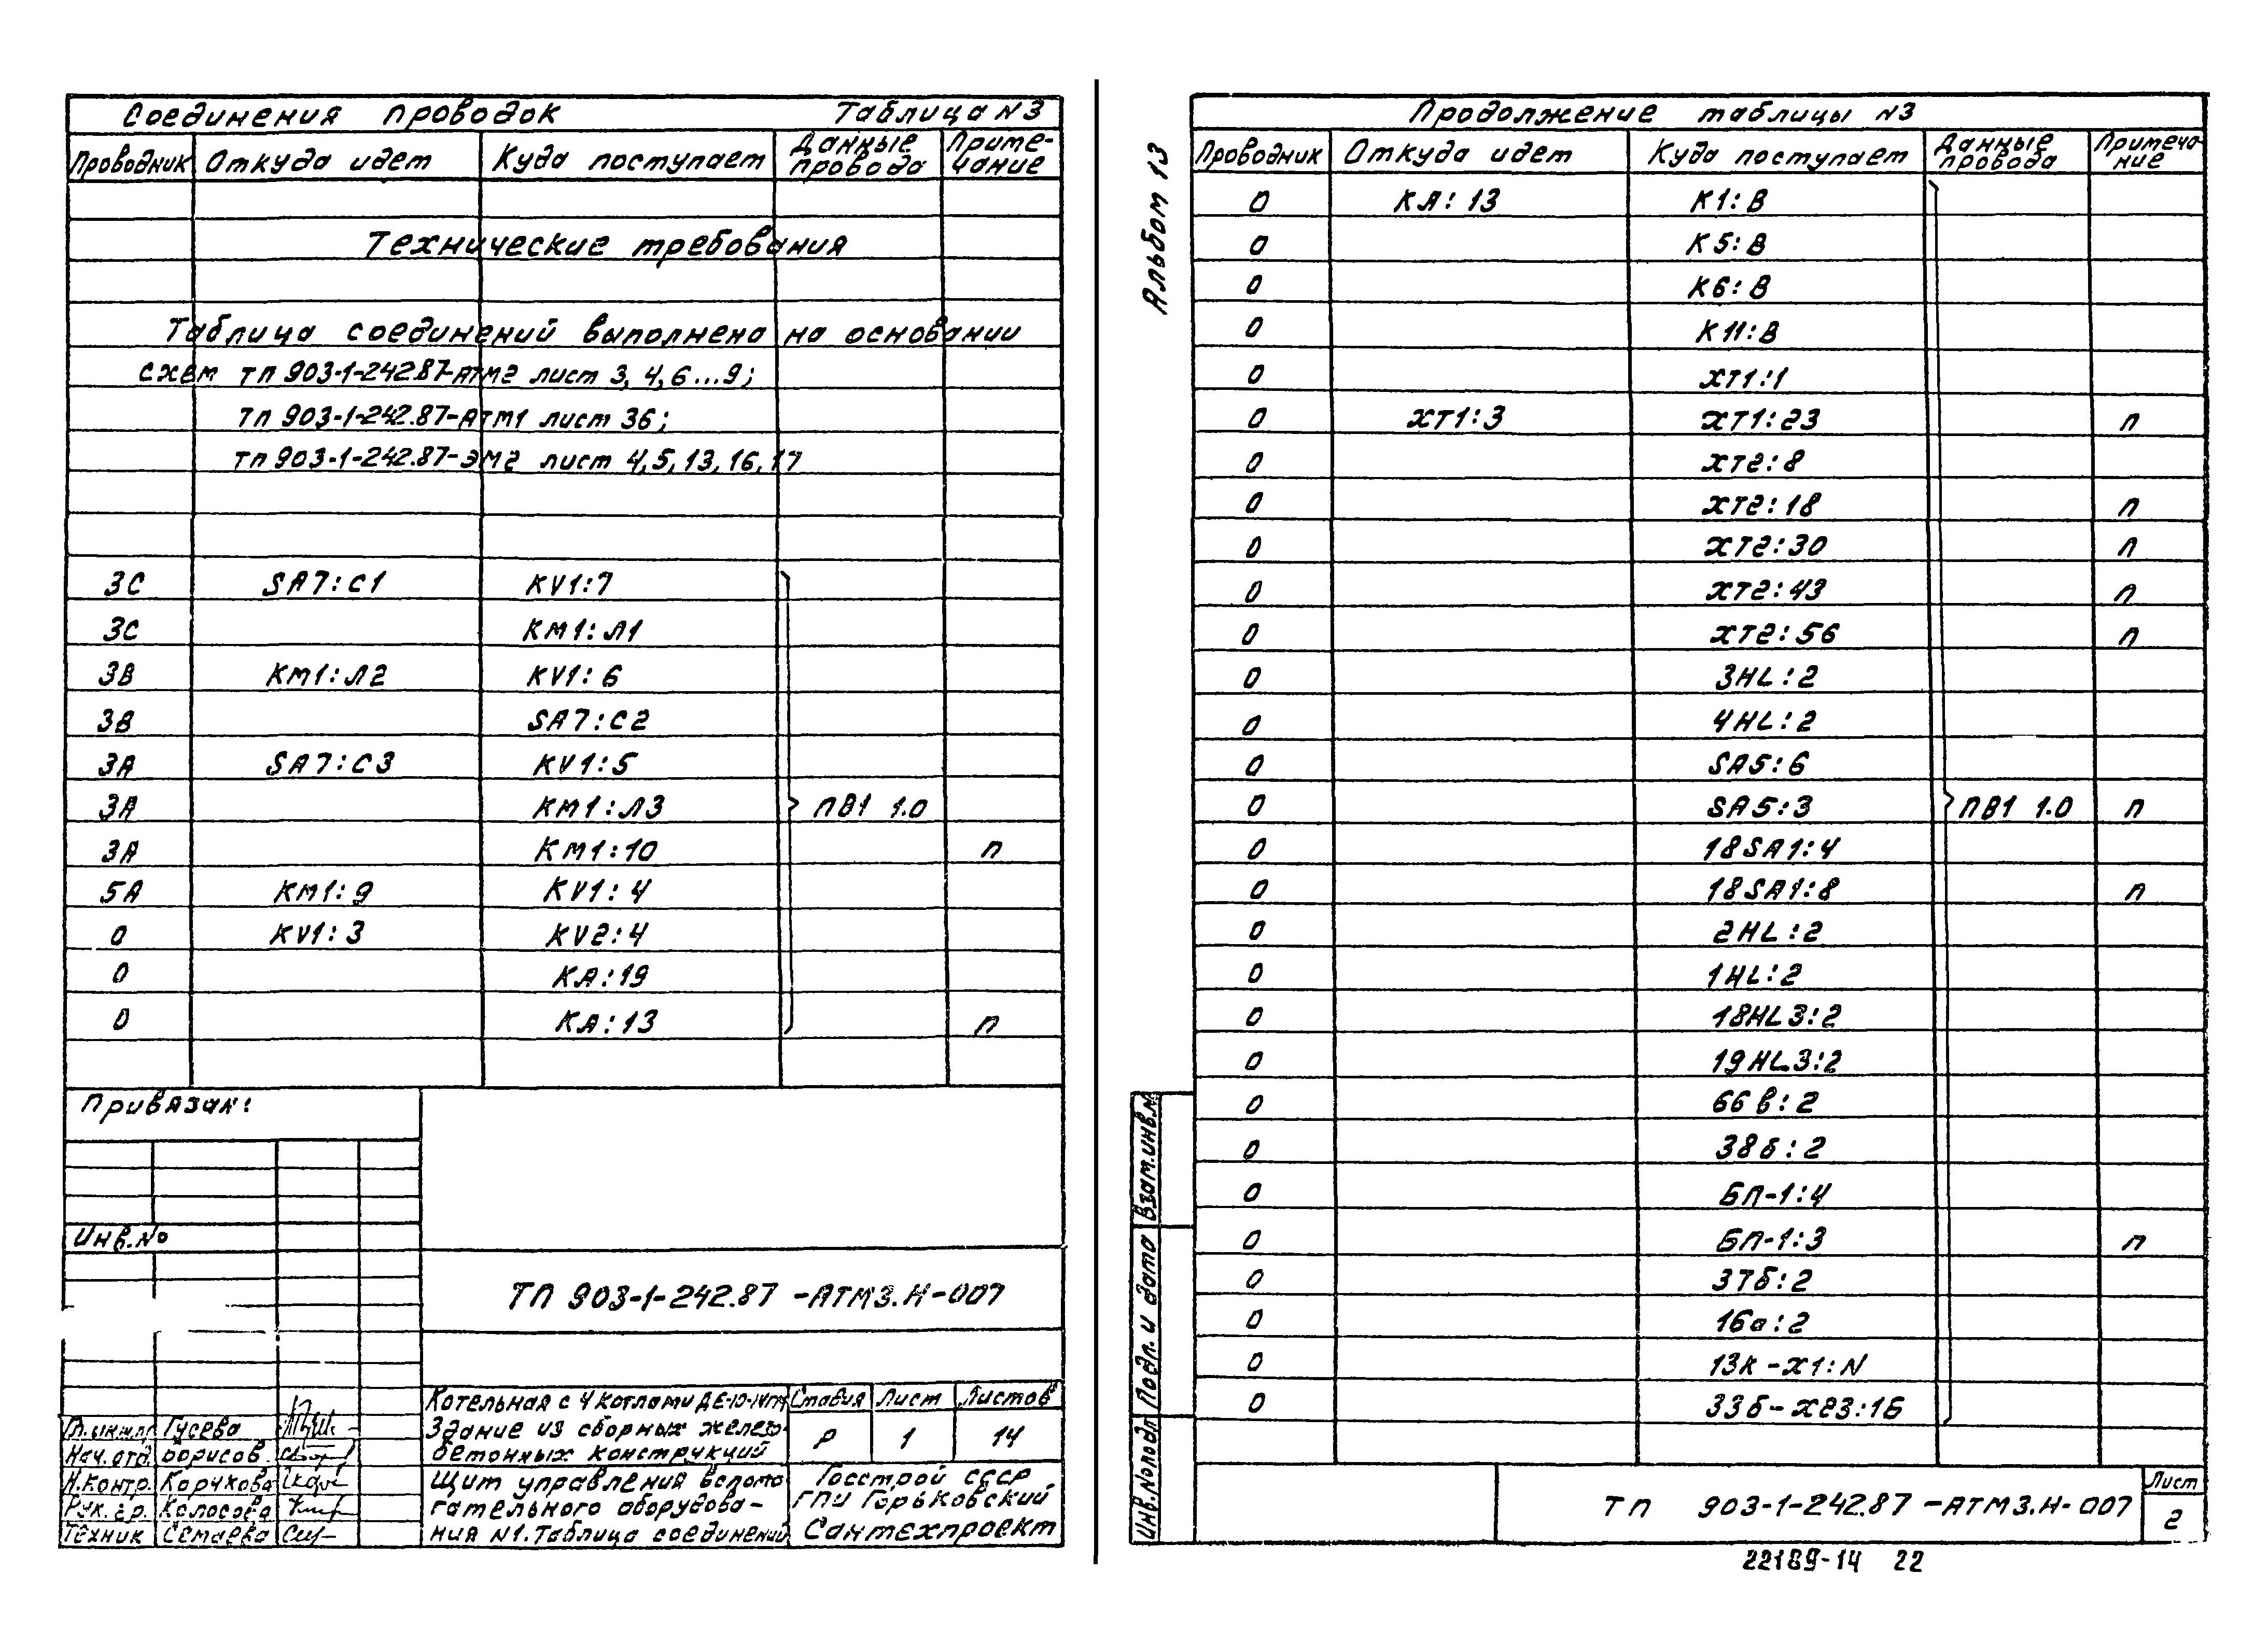 Соединения проводок Таблица N3
Проводник Откуда идет Куда поступает Данные провода Приме-чание
Технические требования
Таблица соединений выполнена на основании
схем ТП 903-1-242.87-АТМ2 лист 3, 4, 6...9;
ТП 903-1-242.87-АТМ1 лист 36;
ТП 903-1-242.87-ЭМ2 лист 4, 5, 13, 16, 17
3С SA7:C1 KV1:7
3С КМ1:Л1
3В КМ1:Л2 KV1:6
3В SA7:C2
3А SA7:C3 KV1:5
3А КМ1:Л3 ПВ1 1.0
3А КМ1:10 п
5А КМ1:9 KV1:4
0 KV1:3 KV2:4
0 КА:19
0 КА:13 п
Привязан:
Инв.№
ТП 903-1-242.87 -АТМ3.Н-007
Котельная с 4 котлами ДЕ-10-14ГМ Стадия Лист Листов
Здание из сборных железо-
бетонных конструкций Р 1 14
Гл.инж.пр Гусева
Нач.отд. Борисов
Н.контр. Корчкова
Рук.гр. Колосова
Техник Семаева
Щит управления вспомо
гательного оборудова-
ния N1. Таблица соединений
Госстрой СССР
ГПИ Горьковский
Сантехпроект
Альбом 13
Продолжение таблицы N3
Проводник Откуда идет Куда поступает Данные провода Примеча-ние
0 КА:13 К1:В
0 К5:В
0 К6:В
0 К11:В
0 ХТ1:1
0 ХТ1:3 ХТ1:23 п
0 ХТ2:8
0 ХТ2:18 п
0 ХТ2:30 п
0 ХТ2:43 п
0 ХТ2:56 п
0 3HL:2
0 4HL:2
0 SA5:6
0 SA5:3 ПВ1 1.0 п
0 18SA1:4
0 18SA1:8 п
0 2HL:2
0 1HL:2
0 18HL3:2
0 19HL3:2
0 66в:2
0 38б:2
0 БП-1:4
0 БП-1:3 п
0 37б:2
0 16а:2
0 13к-х1:N
0 33б-х23:16
Взам.инв.№
Подп. и дата
Инв.№подл
ТП 903-1-242.87 -АТМ3.Н-007 Лист
2
22189-14 22